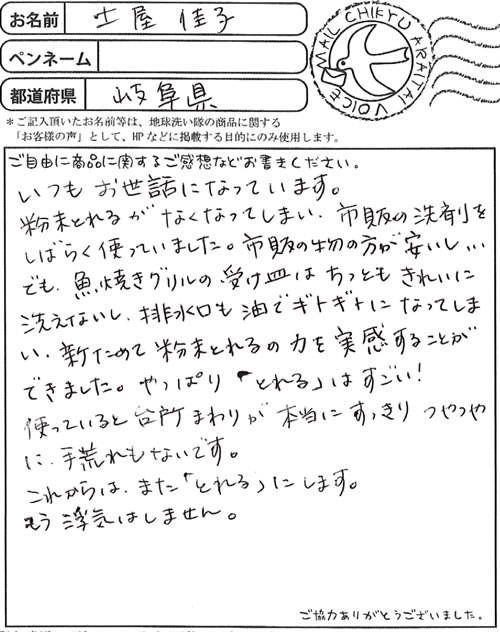 お名前 土屋 佳子
ペンネーム
都道府県 岐阜県
MAIL CHIKYU ARAITAI VOICE
*ご記入頂いたお名前等は、地球洗い隊の商品に関する
「お客様の声」として、HPなどに掲載する目的にのみ使用します。
ご自由に商品に関するご感想などお書きください。
いつもお世話になっています。
粉末とれるがなくなってしまい、市販の洗剤を
しばらく使っていました。市販の物の方が安いし…
でも、魚焼きグリルの受け皿はちっともきれいに
洗えないし、排水口も油でギトギトになってしま
い、新ためて粉末とれるの力を実感することが
できました。やっぱり「とれる」はすごい!
使っていると台所まわりが本当にすっきりつやつや
に、手荒れもないです。
これからは、また「とれる」にします。
もう浮気はしません。
ご協力ありがとうございました。